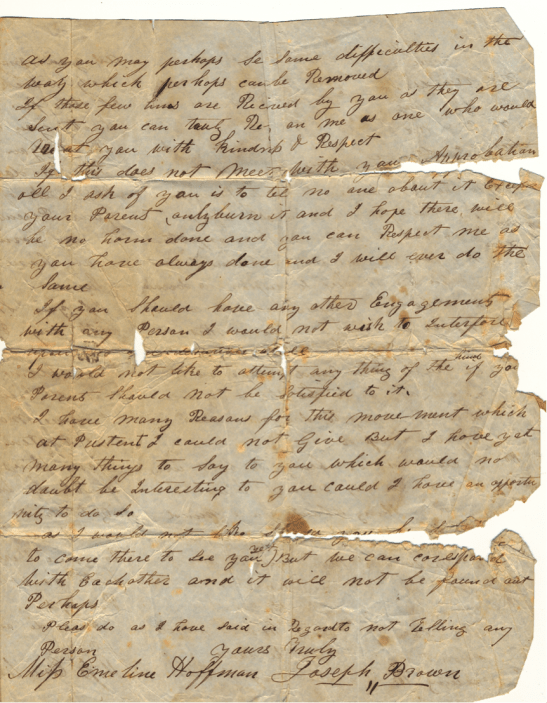 as you may perhaps se some difficulties in the
way which perhaps can be Removed
If these few lines are Recived by you as they are
sent you can truly Re on me as one who would
treat you with Kindness & Respect
If this does not meet with your Approbation
all I ask of you is to tel no one about it Except
your Parents only burn it and I hope there will
be no harm done and you can Respect me as
you have always done and I will ever do the
Same
If you Should have any other Engagement
with any Person I would not wish to Interfere
I would not like to attempt any thing of the kind if your
Parents Should not be Satisfied to it.
I have many Reasons for this move ment which
at Pustent I could not Give But I have yet
many things to Say to you which would no
doubt be Interesting to you could I have an opportu
nity to do so
as I would not
to come there to see you yet But we can corespond
with Each other and it will not be found out
Perhaps
Pleas do as I have said in Regard to not telling any
Person yours Truly
Miss Emeline Hoffman Joseph Brown